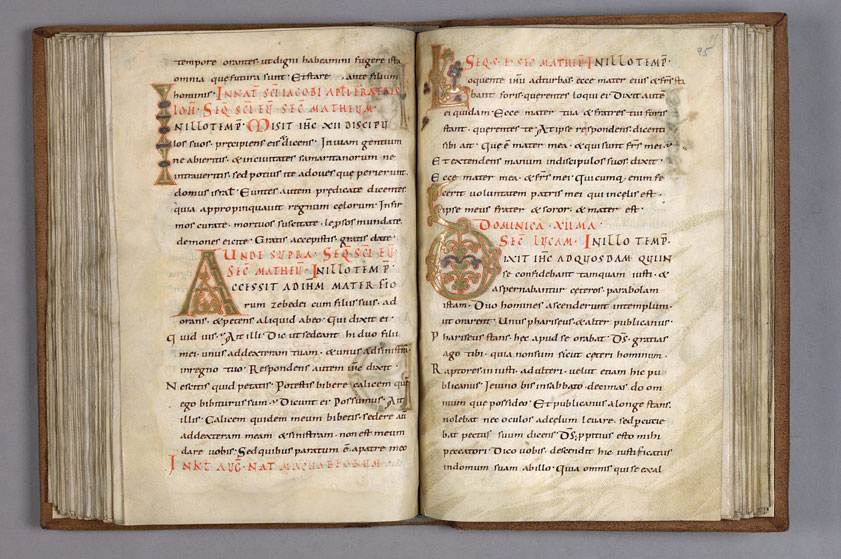 tempore orantes · ut digni habeamini fugere ista
omnia que futura sunt · Et stare ante filium
hominis · IN NAT SCI IACOBI APLI FRATRIS
IOH · SEQ SCI EU SEC MATHEUM ·
IN ILLO TEMP · MISIT IHC XII DISCIPU
los suos · precipiens eis dicens · In uiam gentium
ne abieritis · & in ciuitates samaritanorum ne
intraueritis · sed potius ite ad oues que perierunt
domus isrl · Euntes autem predicate dicentes
quia appropinquauit regnum celorum · Infir
mos curate · mortuos suscitate · leprosos mundate
demones eicite · Gratis accepistis · gratis date ·
UNDE SUPRA · SEQ SCI EU
SEC MATHEU · IN ILLO TEMP ·
ACCESSIT AD IHM MATER FILIO
rum zebedei cum filiis suis · ad
orans · & petens aliquid ab eo · Qui dixit ei ·
Quid uis · Ait illi · Dic ut sedeant hi duo filii
mei · unus ad dexteram tuam · & unus ad sinistram
in regno tuo · Respondens autem ihc dixit ·
Nescitis quid petatis · Potestis bibere calicem que
ego bibiturus sum · Dicunt ei · Possumus · Ait
illis · Calicem quidem meum bibetis · sedere aut
ad dexteram meam & sinistram · non est meum
dare uobis · Sed quibus paratum e a patre meo
IN KL AUG · NAT MACHABEORUM
95
SEQ S E SEC MATHEU · IN ILLO TEMP ·
Loquente ihu ad turbas · ecce mater eius & frs sta
bant foris · querentes loqui ei · Dixit aute
ei quidam · Ecce mater tua & fratres tui foris
stant · querentes te · At ipse respondens dicenti
sibi ait · Que e mater mea · & qui sunt frs mei ·
Et extendens manum in discipulos suos dixit ·
Ecce mater mea · & frs mei · Quicumq, enim fe
cerit uoluntatem patris mei qui in celis est ·
ipse meus frater & soror · & mater est ·
DOMINICA · XII MA ·
SEC LUCAM · IN ILLO TEMP ·
DIXIT IHC AD QUOSDAM QUI IN
se confidebant tamquam iusti · &
aspernabantur ceteros · parabolam
istam · Duo homines ascenderunt in templum ·
ut orarent · Unus phariseus · & alter publicanus ·
Phariseus stans · hec apud se orabat · Ds · gratias
ago tibi · quia non sum sicut ceteri hominum ·
Raptores · iniusti · adulteri · uelut etiam hic pu
blicanus · Ieiuno bis in sabbato · decimas do om
nium que possideo · Et publicanus a longe stans ·
nolebat nec oculos ad celum leuare · sed percutie
bat pectus suum dicens · Ds, ppitius esto mihi
peccatori · Dico uobis · descendit hic iustificatus
in domum suam ab illo · Quia omnis qui se exal